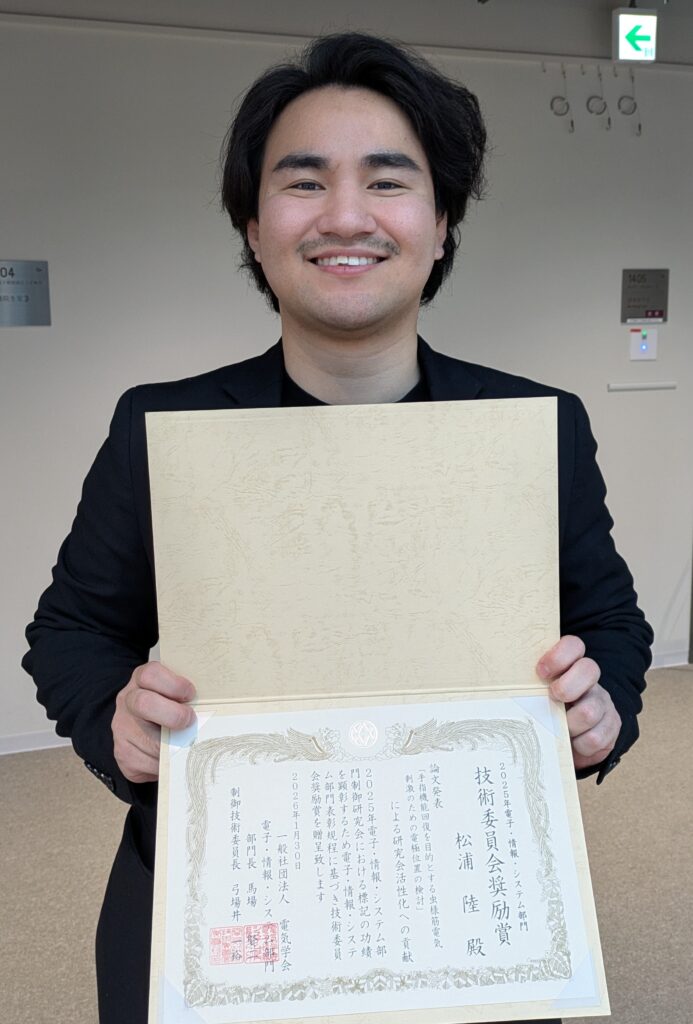 2025年電子・情報・システム部門
技術委員会奨励賞
松浦 陸 殿
論文発表
「手指機能回復を目的とする虫様筋電気
刺激のための電極位置の検討」
による研究会活性化への貢献
2025年電子・情報・システム部
門制御研究会における標記の功績
を顕彰するため電子・情報・システ
ム部門表彰規程に基づき技術委員
会奨励賞を贈呈致します
2026年1月30日
一般社団法人 電気学会
電子・情報・システム部門
部門長 馬場
制御技術委員長 弓場井 一裕
04
1405